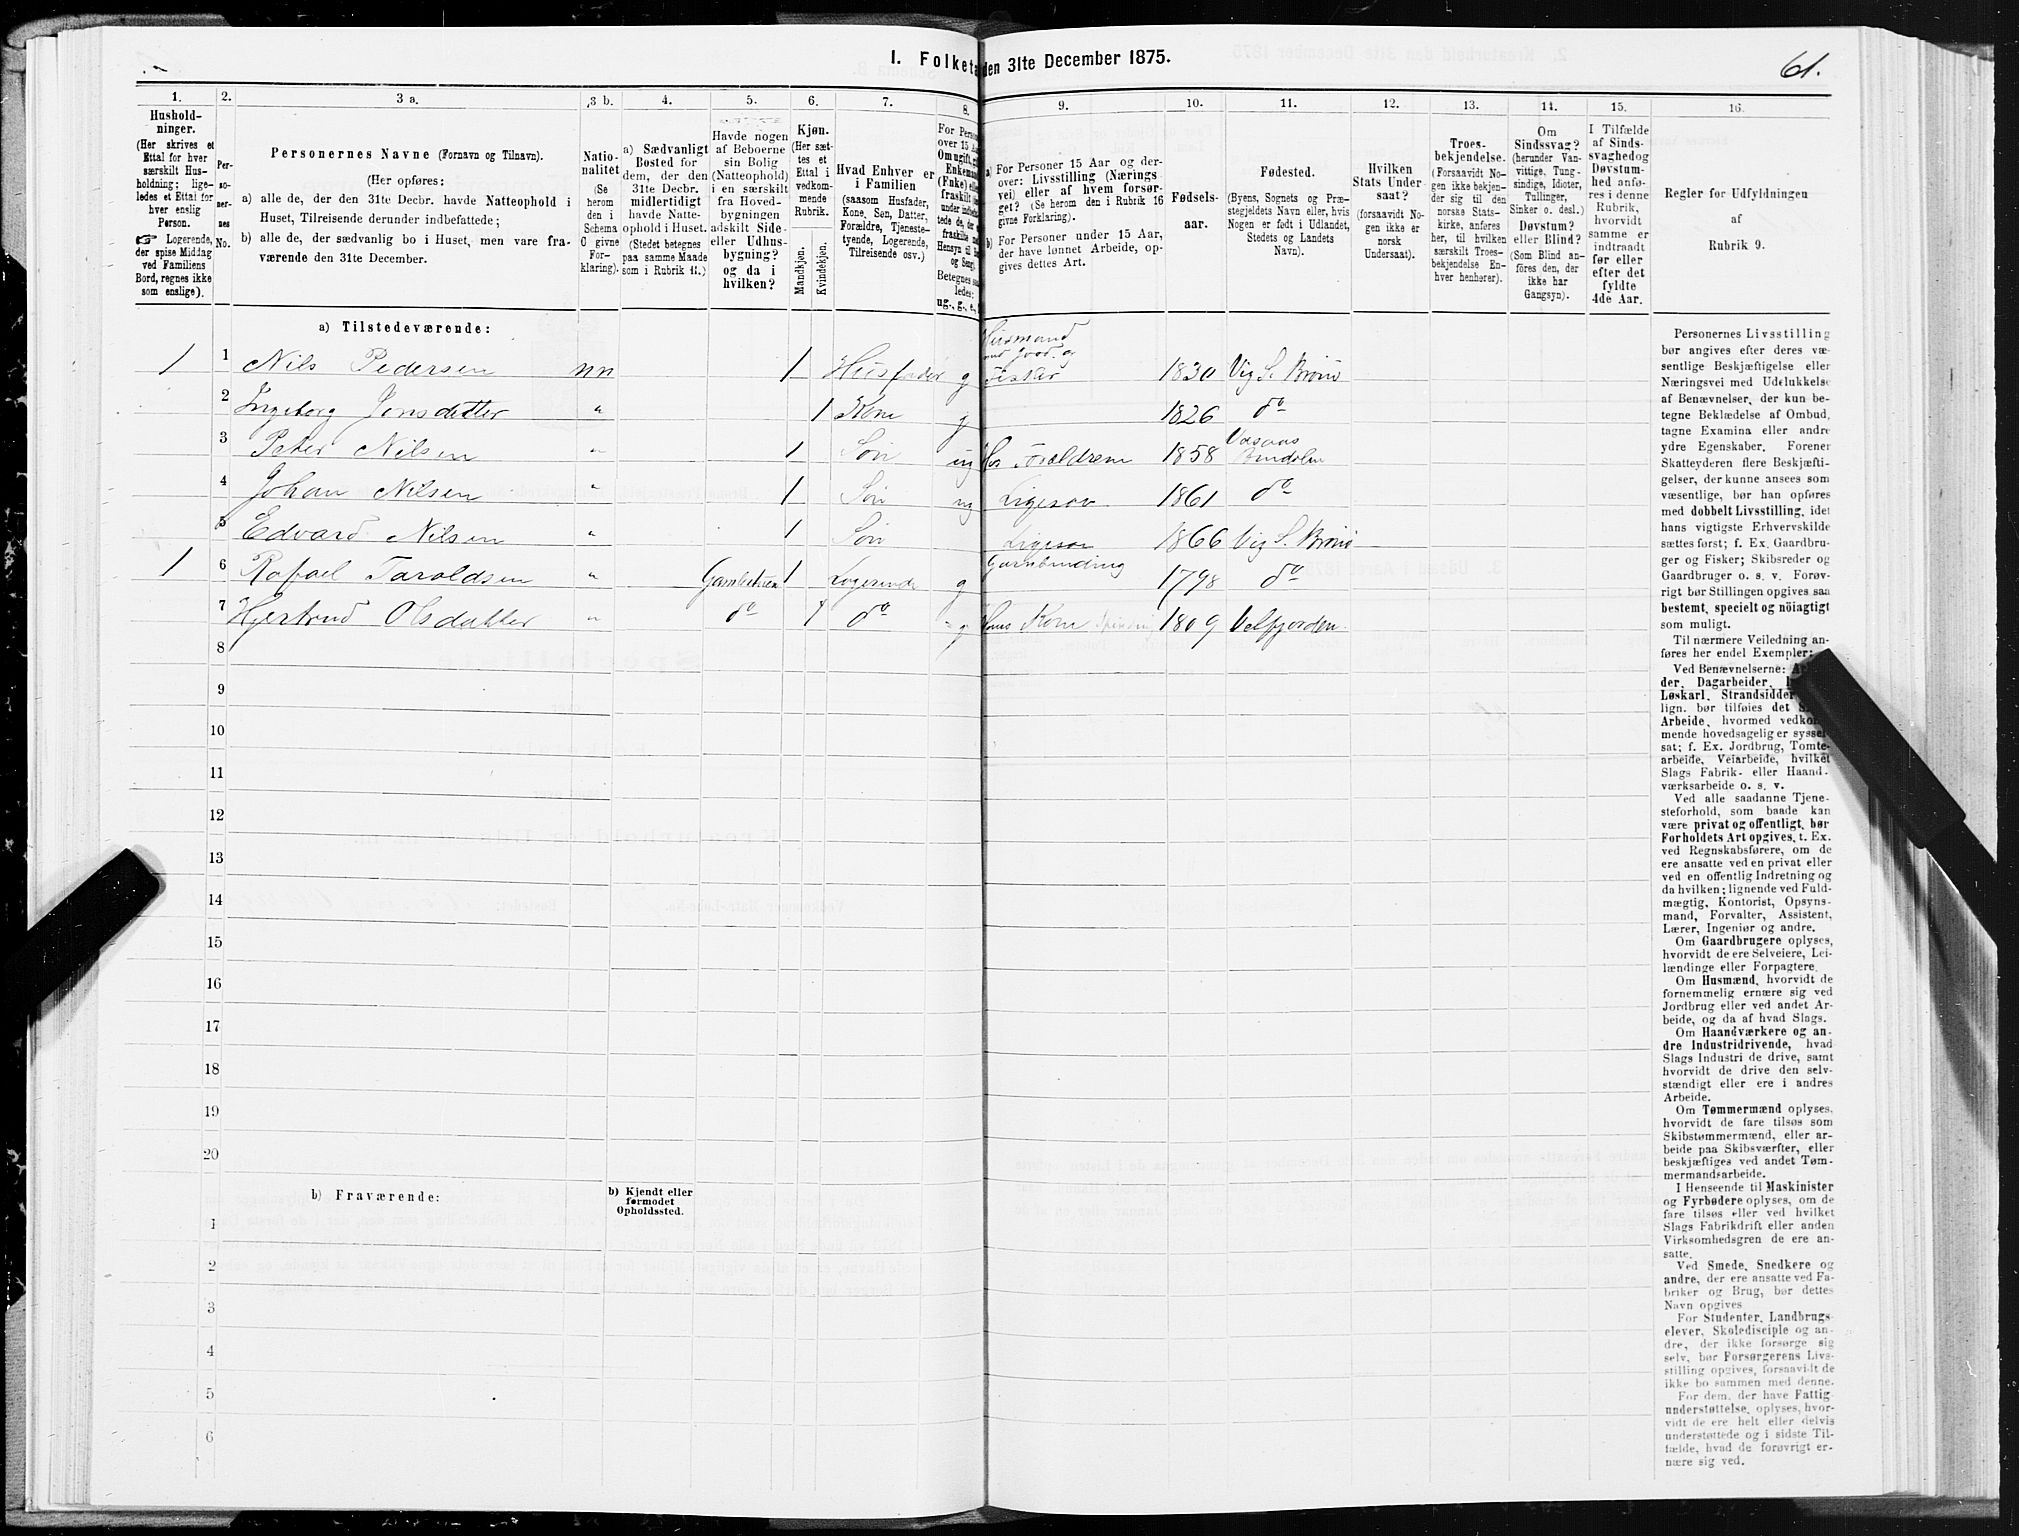 I. Folketa den 31te December 1875.
61.
1. 2. 3 a. 3 b. 4. 5. 6. 7. 8. 9. 10. 11. 12. 13. 14. 15. 16.
Hushold-
ninger.
(Her skrives et
Ettal for hver
særskilt Hus-
holdning; lige-
ledes et Ettal for
hver enslig
Person.
☞ Logerende,
der spise Middag
ved Familiens
Bord, regnes ikke
som enslige).
Per-
so-
ner-
nes
No.
Personernes Navne (Fornavn og Tilnavn).
(Her opføres:
a) alle de, der den 31te Decbr. havde Natteophold i
Huset, Tilreisende derunder indbefattede;
b) alle de, der sædvanlig bo i Huset, men vare fra-
værende den 31te December.
Natio-
nalitet
(Se
herom
den i
Schema
C givne
For-
klaring).
a) Sædvanligt
Bosted for
dem, der den
31te Decbr.
midlertidigt
havde Natte-
ophold i Huset.
(Stedet betegnes
paa samme Maade
som i Rubrik 11.)
Havde nogen
af Beboerne
sin Bolig
(Natteophold)
i en særskilt
fra Hoved-
bygningen
adskilt Side-
eller Udhus-
bygning?
og da i
hvilken?
Kjøn.
(Her sæt-
tes et
Ettal i
vedkom-
mende
Rubrik.
Mandkjøn.
Kvindekjøn.
Hvad Enhver er
i Familien
(saasom Husfader,
Kone, Søn, Datter,
Forældre, Tjeneste-
tyende, Logerende,
Tilreisende osv.)
For Persone
over 15 Aa
Om ugift, gi
Enkeman
(Enke) elle
fraskilt
Hensyn til
og Seng.
Betegnes saa
ledes:
ug., g., e.,
a) For Personer 15 Aar og der-
over: Livsstilling (Nærings
vei) eller af hvem forsør-
get? (Se herom den i Rubrik 16
givne Forklaring).
b) For Personer under 15 Aar,
der have lønnet Arbeide, op-
gives dettes Art.
Fødsels-
aar.
Fødested.
(Byens, Sognets og Præ-
stegjeldets Navn eller, hvis
Nogen er født i Udlandet,
Stedets og Landets
Navn).
Hvilken
Stats Under
saat?
(forsaavidt No-
gen ikke er
norsk
Undersaat).
Troes-
bekjendelse.
(Forsaavidt No-
gen ikke bekjen-
der sig til den
norske Stats-
kirke, anføres
her, til hvilken
særskilt Troes-
bekjendelse En-
hver henhører).
Om
Sindssvag?
(herunder Van-
vittige, Tung-
sindige, Idioter,
Tullinger,
Sinker o. desl.)
Døvstum?
eller Blind?
(Som Blind an-
føres den, der
ikke har
Gangsyn).
I Tilfælde
af Sinds-
svaghed og
Døvstum-
hed anfø-
res i denne
Rubrik,
hvorvidt
samme er
indtraadt
før eller
efter det
fyldte
4de Aar.
Regler for Udfyldningen
af
Rubrik 9.
a) Tilstedeværende:
Husmand
med Jord og
1 1 Nils Pedersen nn 1 Husfader g Fisker 1830 Vig S. Brønø
2 Ingeborg Jensdatter " 1 Kone g 1826 do
3 Peter Nilsen " 1 Søn ug Hos Forældrene 1858 Bindalen
4 Johan Nilsen " 1 Søn ug Ligesaa 1861 do
5 Edvard Nilsen " 1 Søn Ligesaa 1866 Vig S. Brønø
1 6 Rafael Taraldsen " 1 Logerende g Garnbinding 1798 do
7 Hjertrud Olsdatter " do 1 do g Hans Kone Spinding 1809 Velfjorden
8
9
10
11
12
13
14
15
16
17
18
19
20
b) Fraværende:
b) Kjendt eller
formodet
Opholdssted.
1
2
3
4
5
6
Personernes Livsstilling
bør angives efter deres væ-
sentlige Beskjæftigelse eller
Næringsvei med Udelukkelse
af Benævnelser, der kun be-
tegne Beklædelse af Ombud,
tagne Examina eller andre
ydre Egenskaber. Forener
Skatteyderen flere Beskjæfti-
gelser, der kunne ansees som
væsentlige, bør han opføres
med dobbelt Livsstilling, idet
hans vigtigste Erhvervskilde
sættes først; f. Ex. Gaardbru-
ger og Fisker; Skibsreder og
Gaardbruger o. s. v. Forøv-
rigt bør Stillingen opgives saa
bestemt, specielt og nøiagtigt
som muligt.
Til nærmere Veiledning an-
føres her endel Exempler:
Ved Benævnelserne: Ar
der, Dagarbeider,
Løskarl, Strandsidder
lign. bør tilføies det
Arbeide, hvormed vedkom-
mende hovedsagelig er syssel-
sat; f. Ex. Jordbrug, Tomte-
arbeide, Veiarbeide, hvilket
Slags Fabrik- eller Haand-
værksarbeide o. s. v.
Ved alle saadanne Tjene-
steforhold, som baade kan
være privat og offentligt, bør
Forholdets Art opgives, t. Ex.
ved Regnskabsførere, om de
ere ansatte ved en privat eller
ved en offentlig Indretning og
da hvilken; lignende ved Fuld-
mægtig, Kontorist, Opsyns-
mand, Forvalter, Assistent,
Lærer, Ingeniør og andre.
Om Gaardbrugere oplyses,
hvorvidt de ere Selveiere, Lei-
lændinge eller Forpagtere.
Om Husmænd, hvorvidt de
fornemmelig ernære sig ved
Jordbrug eller ved andet Ar-
beide, og da af hvad Slags.
Om Haandværkere og an-
dre Industridrivende, hvad
Slags Industri de drive, samt
hvorvidt de drive den selv-
stændigt eller ere i andres
Arbeide.
Om Tømmermænd oplyses,
hvorvidt de fare tilsøs som
Skibstømmermænd, eller ar-
beide paa Skibsværfter, eller
beskjæftiges ved andet Tøm-
mermandsarbeide.
I Henseende til Maskinister
og Fyrbødere oplyses, om de
fare tilsøs eller ved hvilket
Slags Fabrikdrift eller anden
Virksomhedsgren de ere an-
satte.
Ved Smede, Snedkere og
andre, der ere ansatte ved Fa-
briker og Brug, bør dettes
Navn opgives
For Studenter, Landbrugs-
elever, Skoledisciple og an-
dre, der ikke forsørge sig
selv, bør Forsørgerens Livs-
stilling opgives, forsaavidt de
ikke bo sammen med denne.
For dem, der have Fattig-
understøttelse, oplyses, hvor-
vidt de ere helt eller delvis
understøttede og i sidste Til-
fælde, hvad de forøvrigt er-
nære sig ved.